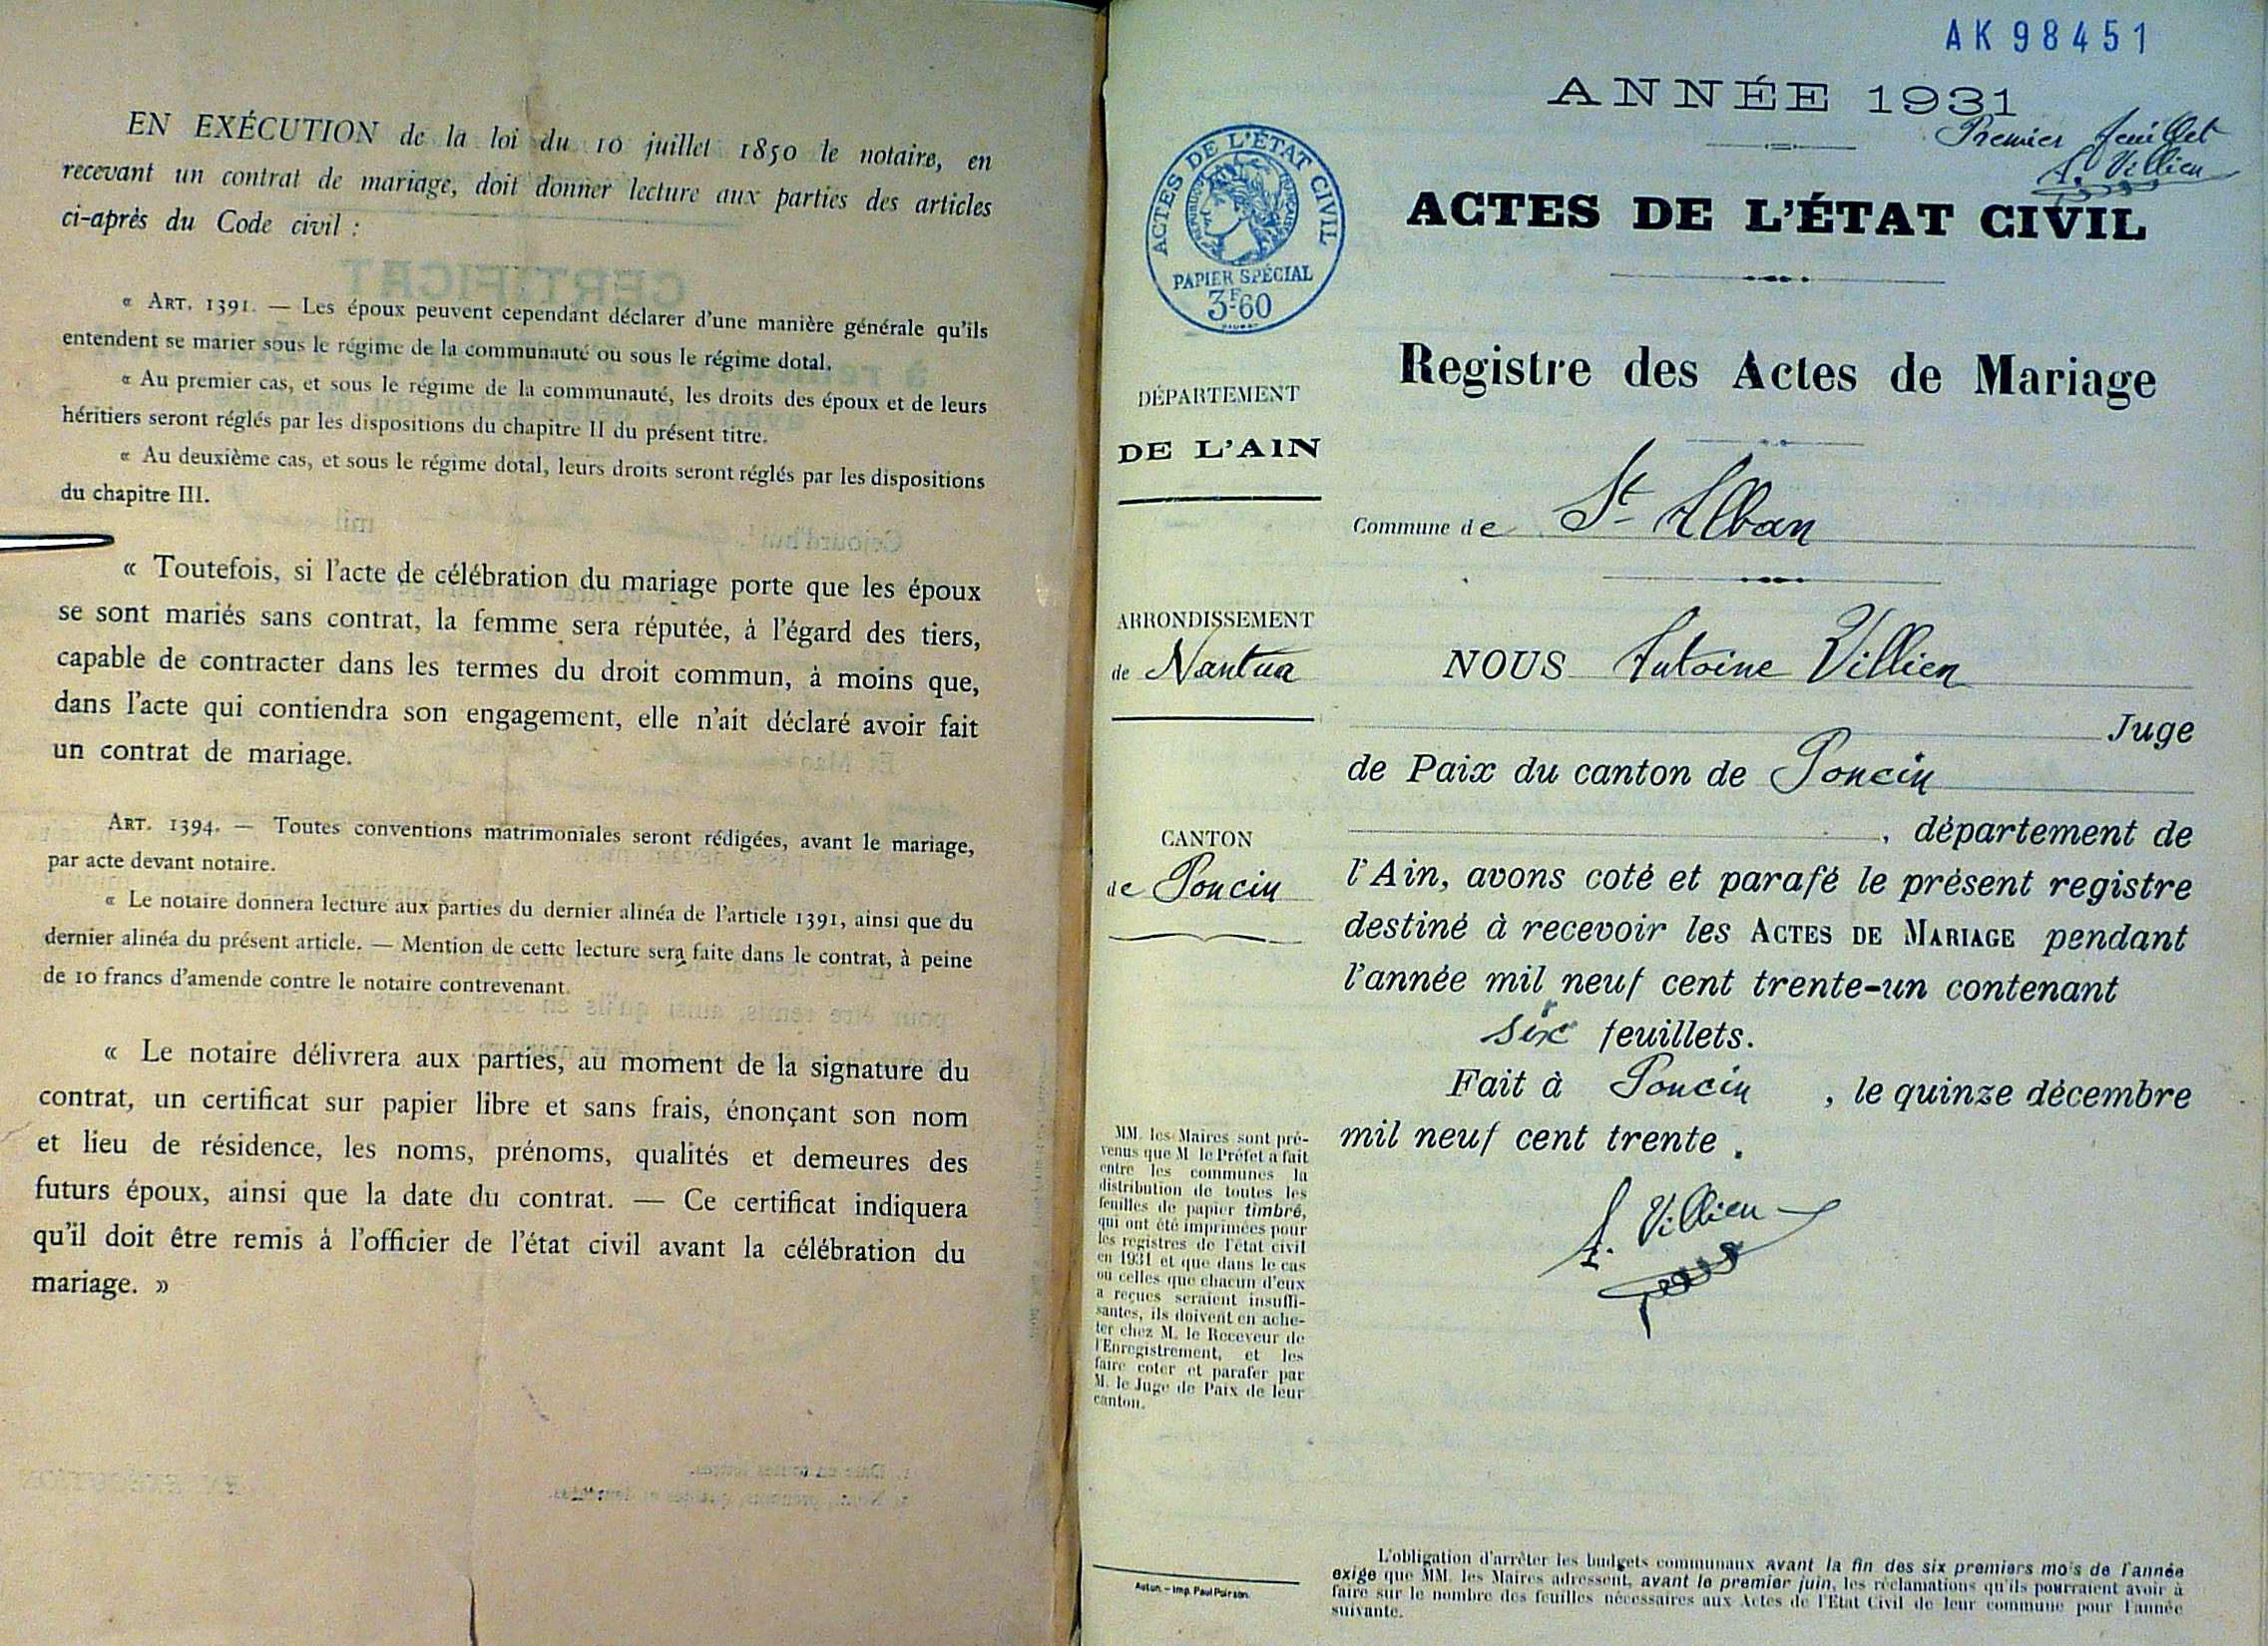 EN EXÉCUTION de la loi du 10 juillet 1850 le notaire, en
recevant un contrat de mariage, doit donner lecture aux parties des articles
ci-après du Code civil :
« ART. 1391. — Les époux peuvent cependant déclarer d'une manière générale qu'ils
entendent se marier sous le régime de la communauté ou sous le régime dotal.
« Au premier cas, et sous le régime de la communauté, les droits des époux et de leurs
héritiers seront réglés par les dispositions du chapitre II du présent titre.
« Au deuxième cas, et sous le régime dotal, leurs droits seront réglés par les dispositions
du chapitre III.
« Toutefois, si l'acte de célébration du mariage porte que les époux
se sont mariés sans contrat, la femme sera réputée, à l'égard des tiers,
capable de contracter dans les termes du droit commun, à moins que,
dans l'acte qui contiendra son engagement, elle n'ait déclaré avoir fait
un contrat de mariage.
ART. 1394. — Toutes conventions matrimoniales seront rédigées, avant le mariage,
par acte devant notaire.
« Le notaire donnera lecture aux parties du dernier alinéa de l'article 1391, ainsi que du
dernier alinéa du présent article. — Mention de cette lecture sera faite dans le contrat, à peine
de 10 francs d'amende contre le notaire contrevenant.
« Le notaire délivrera aux parties, au moment de la signature du
contrat, un certificat sur papier libre et sans frais, énonçant son nom
et lieu de résidence, les noms, prénoms, qualités et demeures des
futurs époux, ainsi que la date du contrat. — Ce certificat indiquera
qu'il doit être remis à l'officier de l'état civil avant la célébration du
mariage. »
AK98451
ANNÉE 1931
Premier feuillet
A. Villien
ACTES DE L'ÉTAT CIVIL
RÉPUBLIQUE FRANÇAISE
PAPIER SPÉCIAL
3F60
ACTES DE L'ÉTAT CIVIL
Registre des Actes de Mariage
DÉPARTEMENT
DE L'AIN
Commune de St Alban
ARRONDISSEMENT
de Nantua
CANTON
de Poncin
NOUS Antoine Villien
Juge
de Paix du canton de Poncin
, département de
l'Ain, avons coté et parafé le présent registre
destiné à recevoir les ACTES DE MARIAGE pendant
l'année mil neuf cent trente-un contenant
six feuillets.
Fait à Poncin , le quinze décembre
mil neuf cent trente .
A. Villien
MM. les Maires sont pré-
venus que M. le Préfet a fait
entre les communes la
distribution de toutes les
feuilles de papier timbré,
qui ont été imprimées pour
les registres de l'état civil
en 1931 et que dans le cas
où celles que chacun d'eux
a reçues seraient insuffi-
santes, ils doivent en ache-
ter chez M. le Receveur de
l'Enregistrement, et les
faire coter et parafer par
M. le Juge de Paix de leur
canton.
Autun. – Imp. Paul Poirson.
L'obligation d'arrêter les budgets communaux avant la fin des six premiers mois de l'année
exige que MM. les Maires adressent, avant le premier juin, les réclamations qu'ils pourraient avoir à
faire sur le nombre des feuilles nécessaires aux Actes de l'Etat Civil de leur commune pour l'année
suivante.